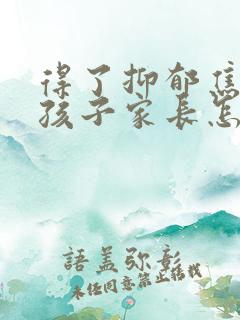 得了抑郁焦
孩子家长怎
語盖弥彰
未经同意禁止搭找